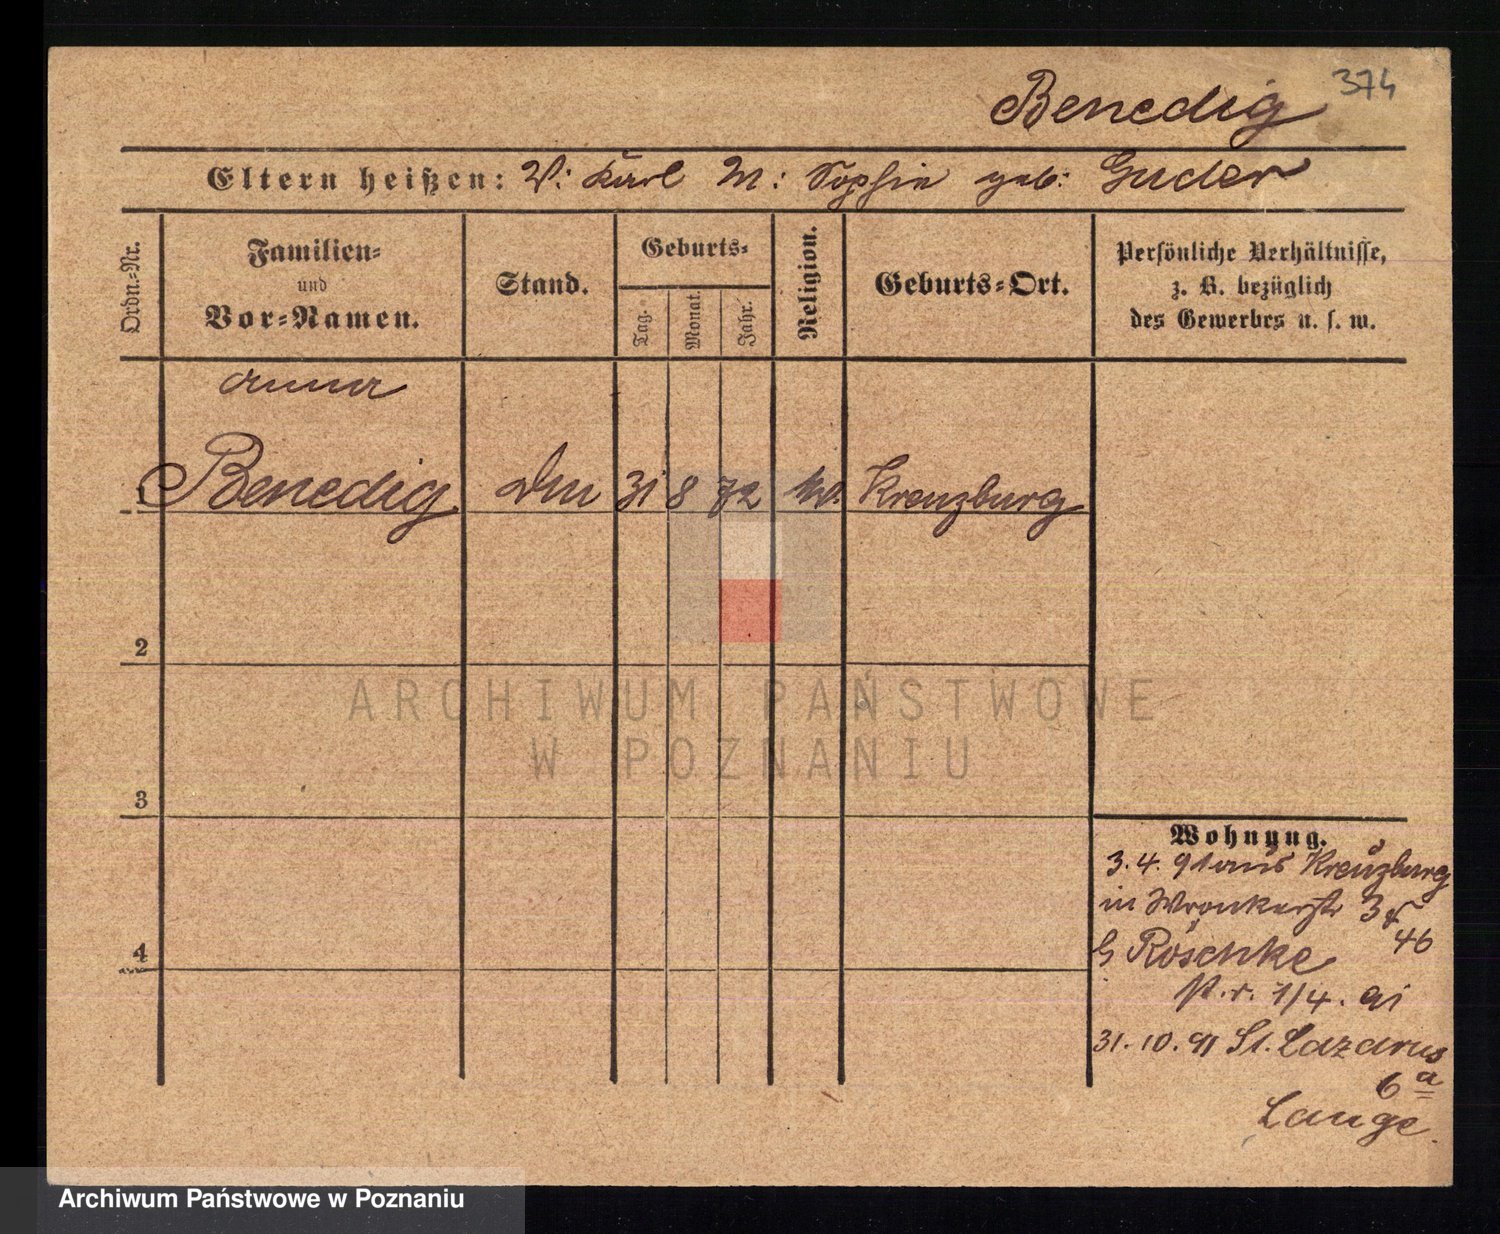 374
Benedig
Eltern heißen: V: Karl M: Sophie geb: Guder
Ordn.=Nr.
Familien=
und
Vor=Namen.
Stand.
Geburts=
Tag.
Monat.
Jahr.
Religion.
Geburts=Ort.
Persönliche Verhältnisse,
z. B. bezüglich
des Gewerbes u. s. w.
Anna
1 Benedig 31 8 72 Kreuzburg
2
3
4
Wohnung.
3. 4. 91 aus Kreuzburg
in Wronkerstr 3
46
b Röschke
1/4. 91
31. 10. 91 St. Lazarus
6a
Lange.
ARCHIWUM PAŃSTWOWE
W POZNANIU
Archiwum Państwowe w Poznaniu